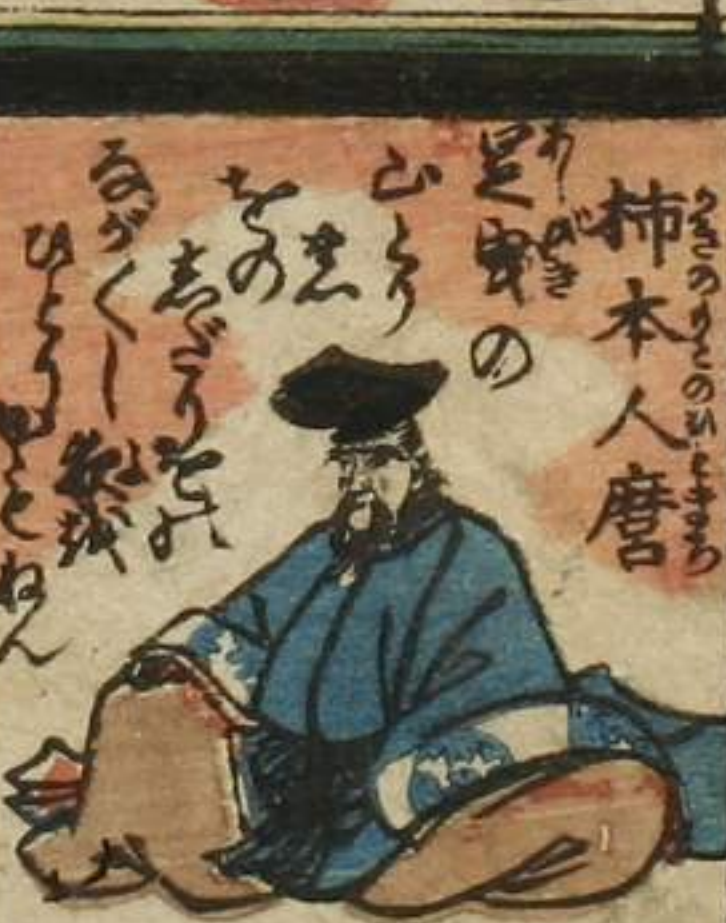 柿本人麿
かきのもとのひとまろ
足曳の
あしびき
山とり
の志
をの
志だりをの
ながくし
夜を
よ
ひとりかもねん